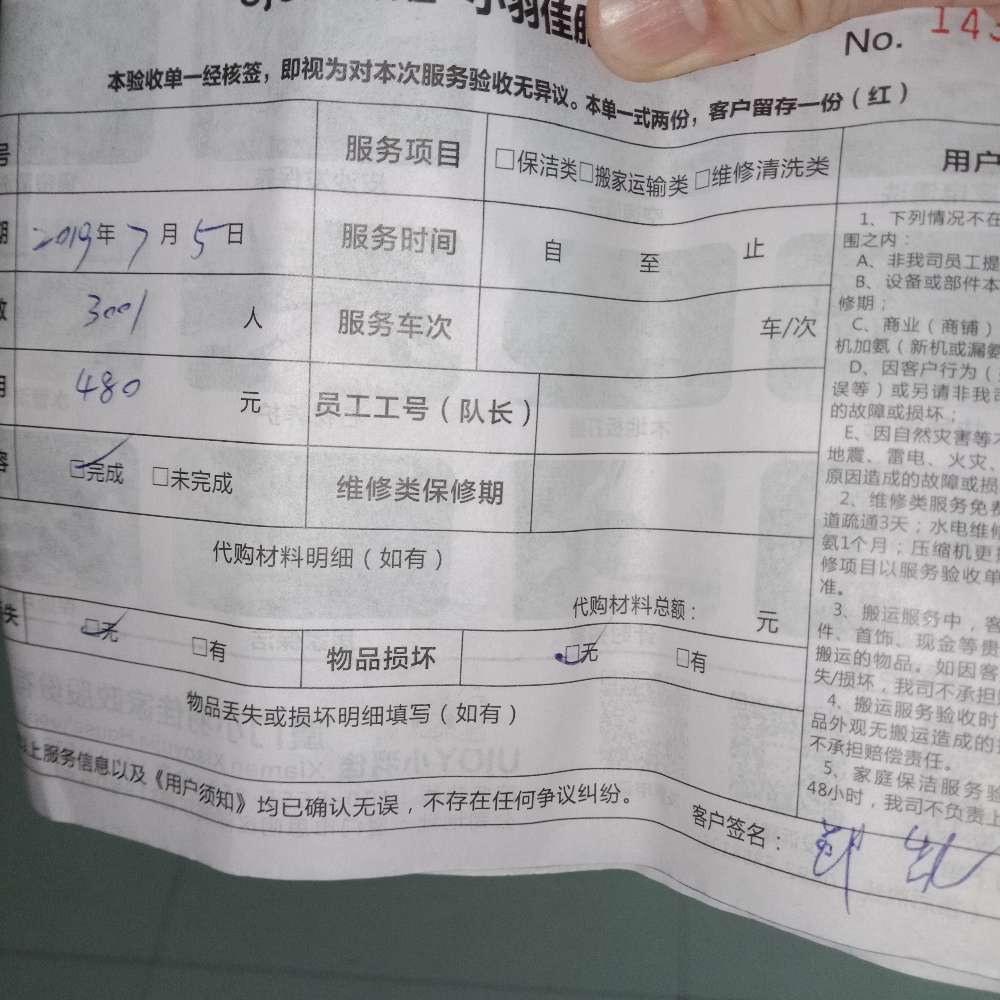 小羽佳服
No. 143
本验收单一经核签，即视为对本次服务验收无异议。本单一式两份，客户留存一份（红）
号 服务项目 □保洁类□搬家运输类 □维修清洗类 用户
期 2019年7月5日 服务时间 自 至 止
数 3001 人 服务车次 车/次
用 480 元 员工工号（队长）
容 □完成 □未完成 维修类保修期
代购材料明细（如有）
代购材料总额： 元
失 □无 □有 物品损坏 □无 □有
物品丢失或损坏明细填写（如有）
上服务信息以及《用户须知》均已确认无误，不存在任何争议纠纷。
客户签名：
1、下列情况不在
围之内：
A、非我司员工提
B、设备或部件本
修期；
C、商业（商铺）
机加氨（新机或漏氨
D、因客户行为（
误等）或另请非我司
的故障或损坏；
E、因自然灾害等不
地震、雷电、火灾、
原因造成的故障或损
2、维修类服务免费
道疏通3天；水电维修
氨1个月；压缩机更
修项目以服务验收单
准。
3、搬运服务中，客
件、首饰、现金等贵
搬运的物品。如因客
失/损坏，我司不承担
4、搬运服务验收时
品外观无搬运造成的
不承担赔偿责任。
5、家庭保洁服务验
48小时，我司不负责上